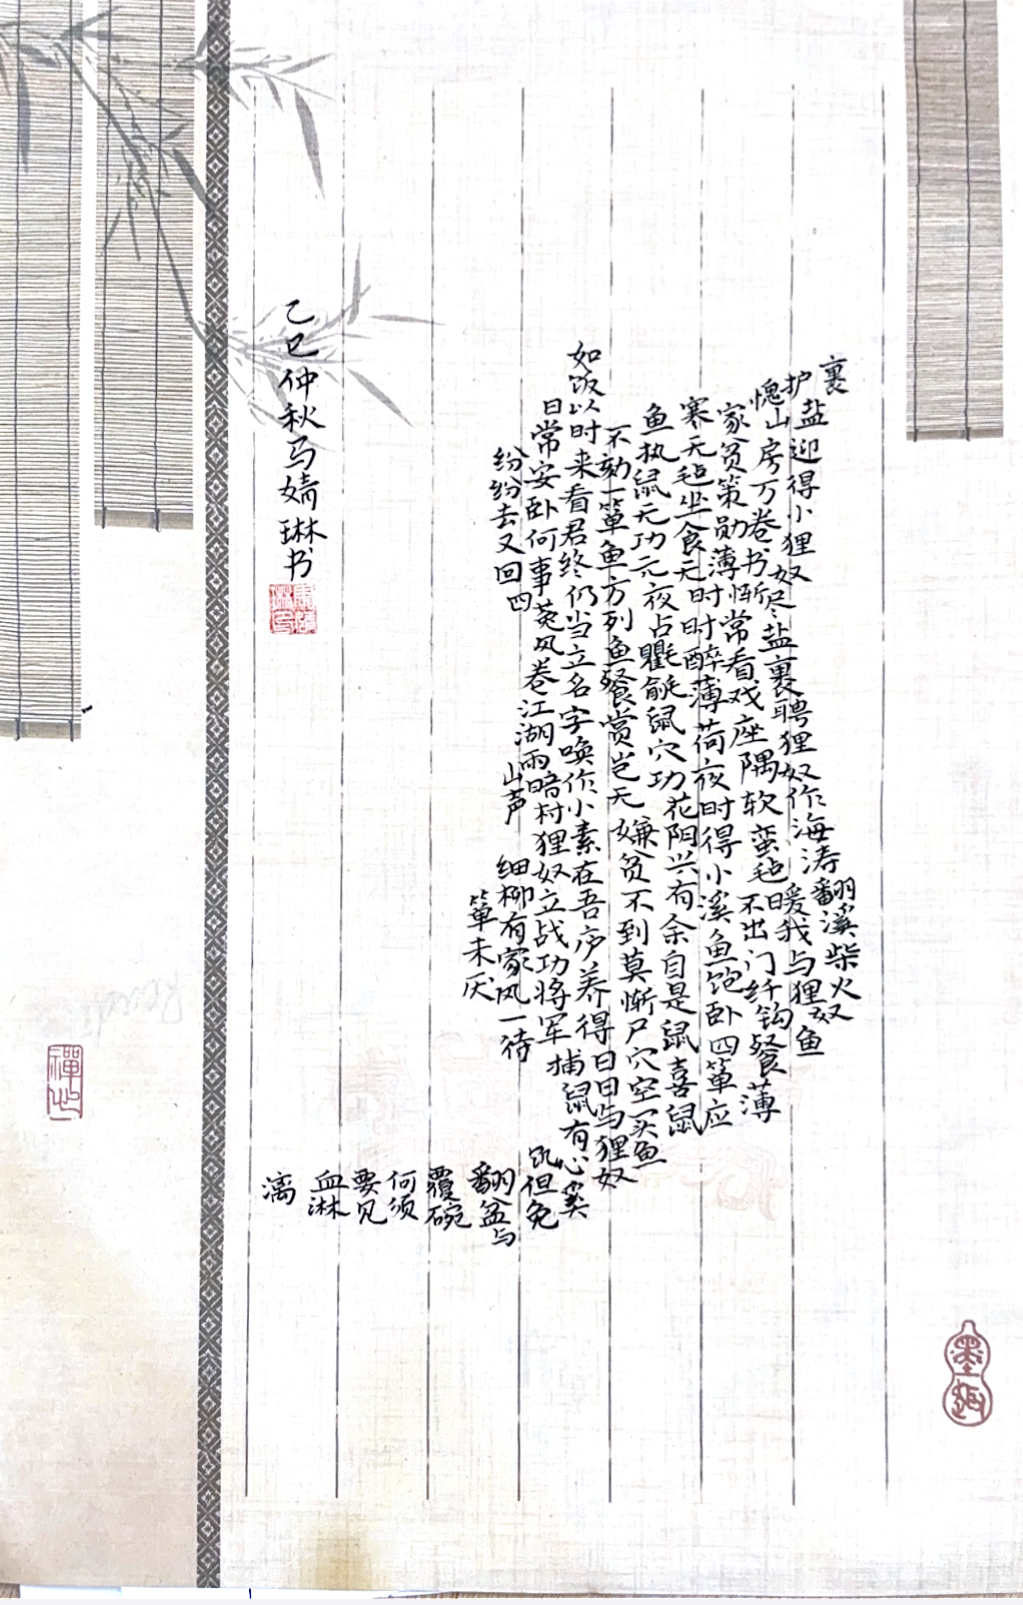 裹
盐迎得小狸奴尽盐裹聘狸奴作海涛翻溪柴火
护山房万卷书惭常看戏座隅软蛮毡暖我与狸奴鱼
愧家贫策勋薄时时醉薄荷不出门纤钩餐薄
寒无毡坐食无夜时得小溪鱼饱卧四箪应
鱼执鼠无功元夜占氍毹鼠穴功花阴兴有余自是鼠喜鼠
不劾一箪鱼方列鱼餐赏岂无嫌贫不到莫惭尸穴空买鱼
如饭以时来看君终仍当立名字唤作小素在吾庐养得日日与狸奴
日常安卧何事茭风卷江湖雨暗村狸奴立战功将军捕鼠有心奚
纷纷去又回四
山声
细柳有家风一待
箪未厌
饥但免
翻盆与
覆碗
何须
要见
血淋
漓
乙巳仲秋马婧琳书